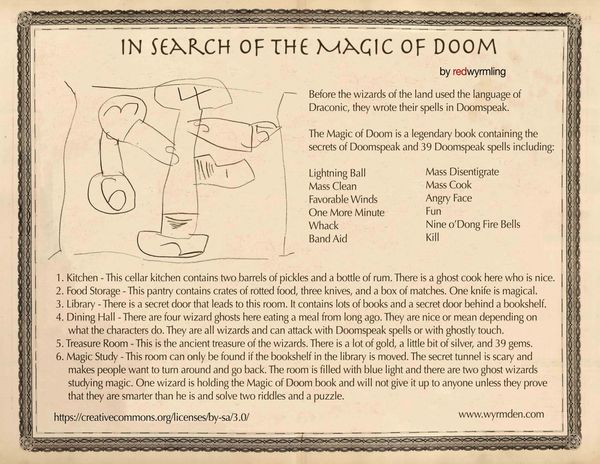 IN SEARCH OF THE MAGIC OF DOOM
by redwyrmling
4
3
5
1
6
2
Before the wizards of the land used the language of
Draconic, they wrote their spells in Doomspeak.
The Magic of Doom is a legendary book containing the
secrets of Doomspeak and 39 Doomspeak spells including:
Lightning Ball
Mass Clean
Favorable Winds
One More Minute
Whack
Band Aid
Mass Disentigrate
Mass Cook
Angry Face
Fun
Nine o'Dong Fire Bells
Kill
1. Kitchen - This cellar kitchen contains two barrels of pickles and a bottle of rum. There is a ghost cook here who is nice.
2. Food Storage - This pantry contains crates of rotted food, three knives, and a box of matches. One knife is magical.
3. Library - There is a secret door that leads to this room. It contains lots of books and a secret door behind a bookshelf.
4. Dining Hall - There are four wizard ghosts here eating a meal from long ago. They are nice or mean depending on
what the characters do. They are all wizards and can attack with Doomspeak spells or with ghostly touch.
5. Treasure Room - This is the ancient treasure of the wizards. There is a lot of gold, a little bit of silver, and 39 gems.
6. Magic Study - This room can only be found if the bookshelf in the library is moved. The secret tunnel is scary and
makes people want to turn around and go back. The room is filled with blue light and there are two ghost wizards
studying magic. One wizard is holding the Magic of Doom book and will not give it up to anyone unless they prove
that they are smarter than he is and solve two riddles and a puzzle.
https://creativecommons.org/licenses/by-sa/3.0/
www.wyrmden.com